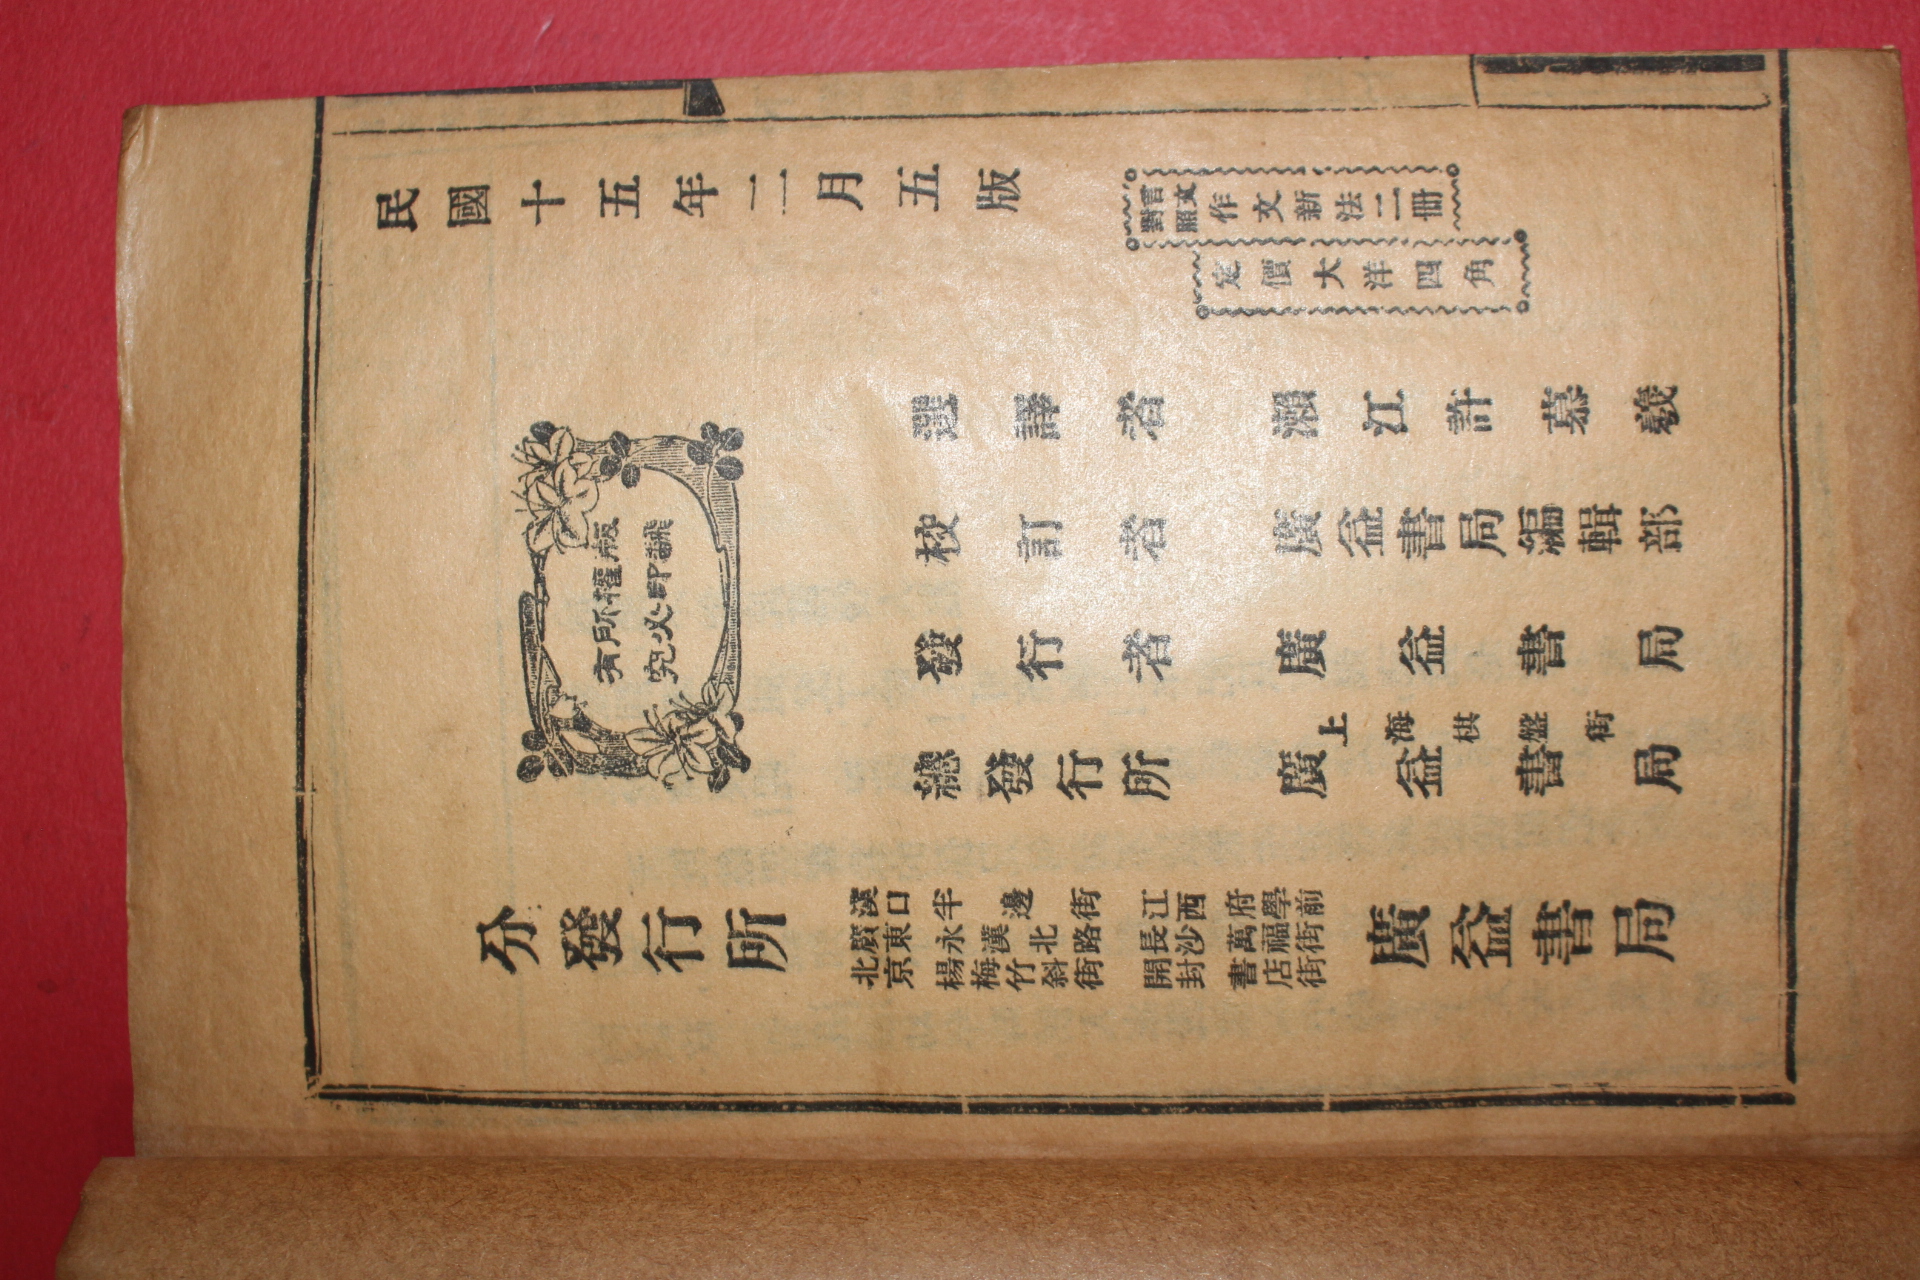 民國十五年二月五版
言文對照作文新法二冊
定價大洋四角
選譯者 瀨江許慕羲
版權所有
翻印必究
校訂者 廣益書局編輯部
發行者 廣益書局
總發行所 上海棋盤街 廣益書局
分發行所
漢口半邊街
廣東永漢北路
北京楊梅竹斜街
江西府學前
長沙萬福街
開封書店街
廣益書局